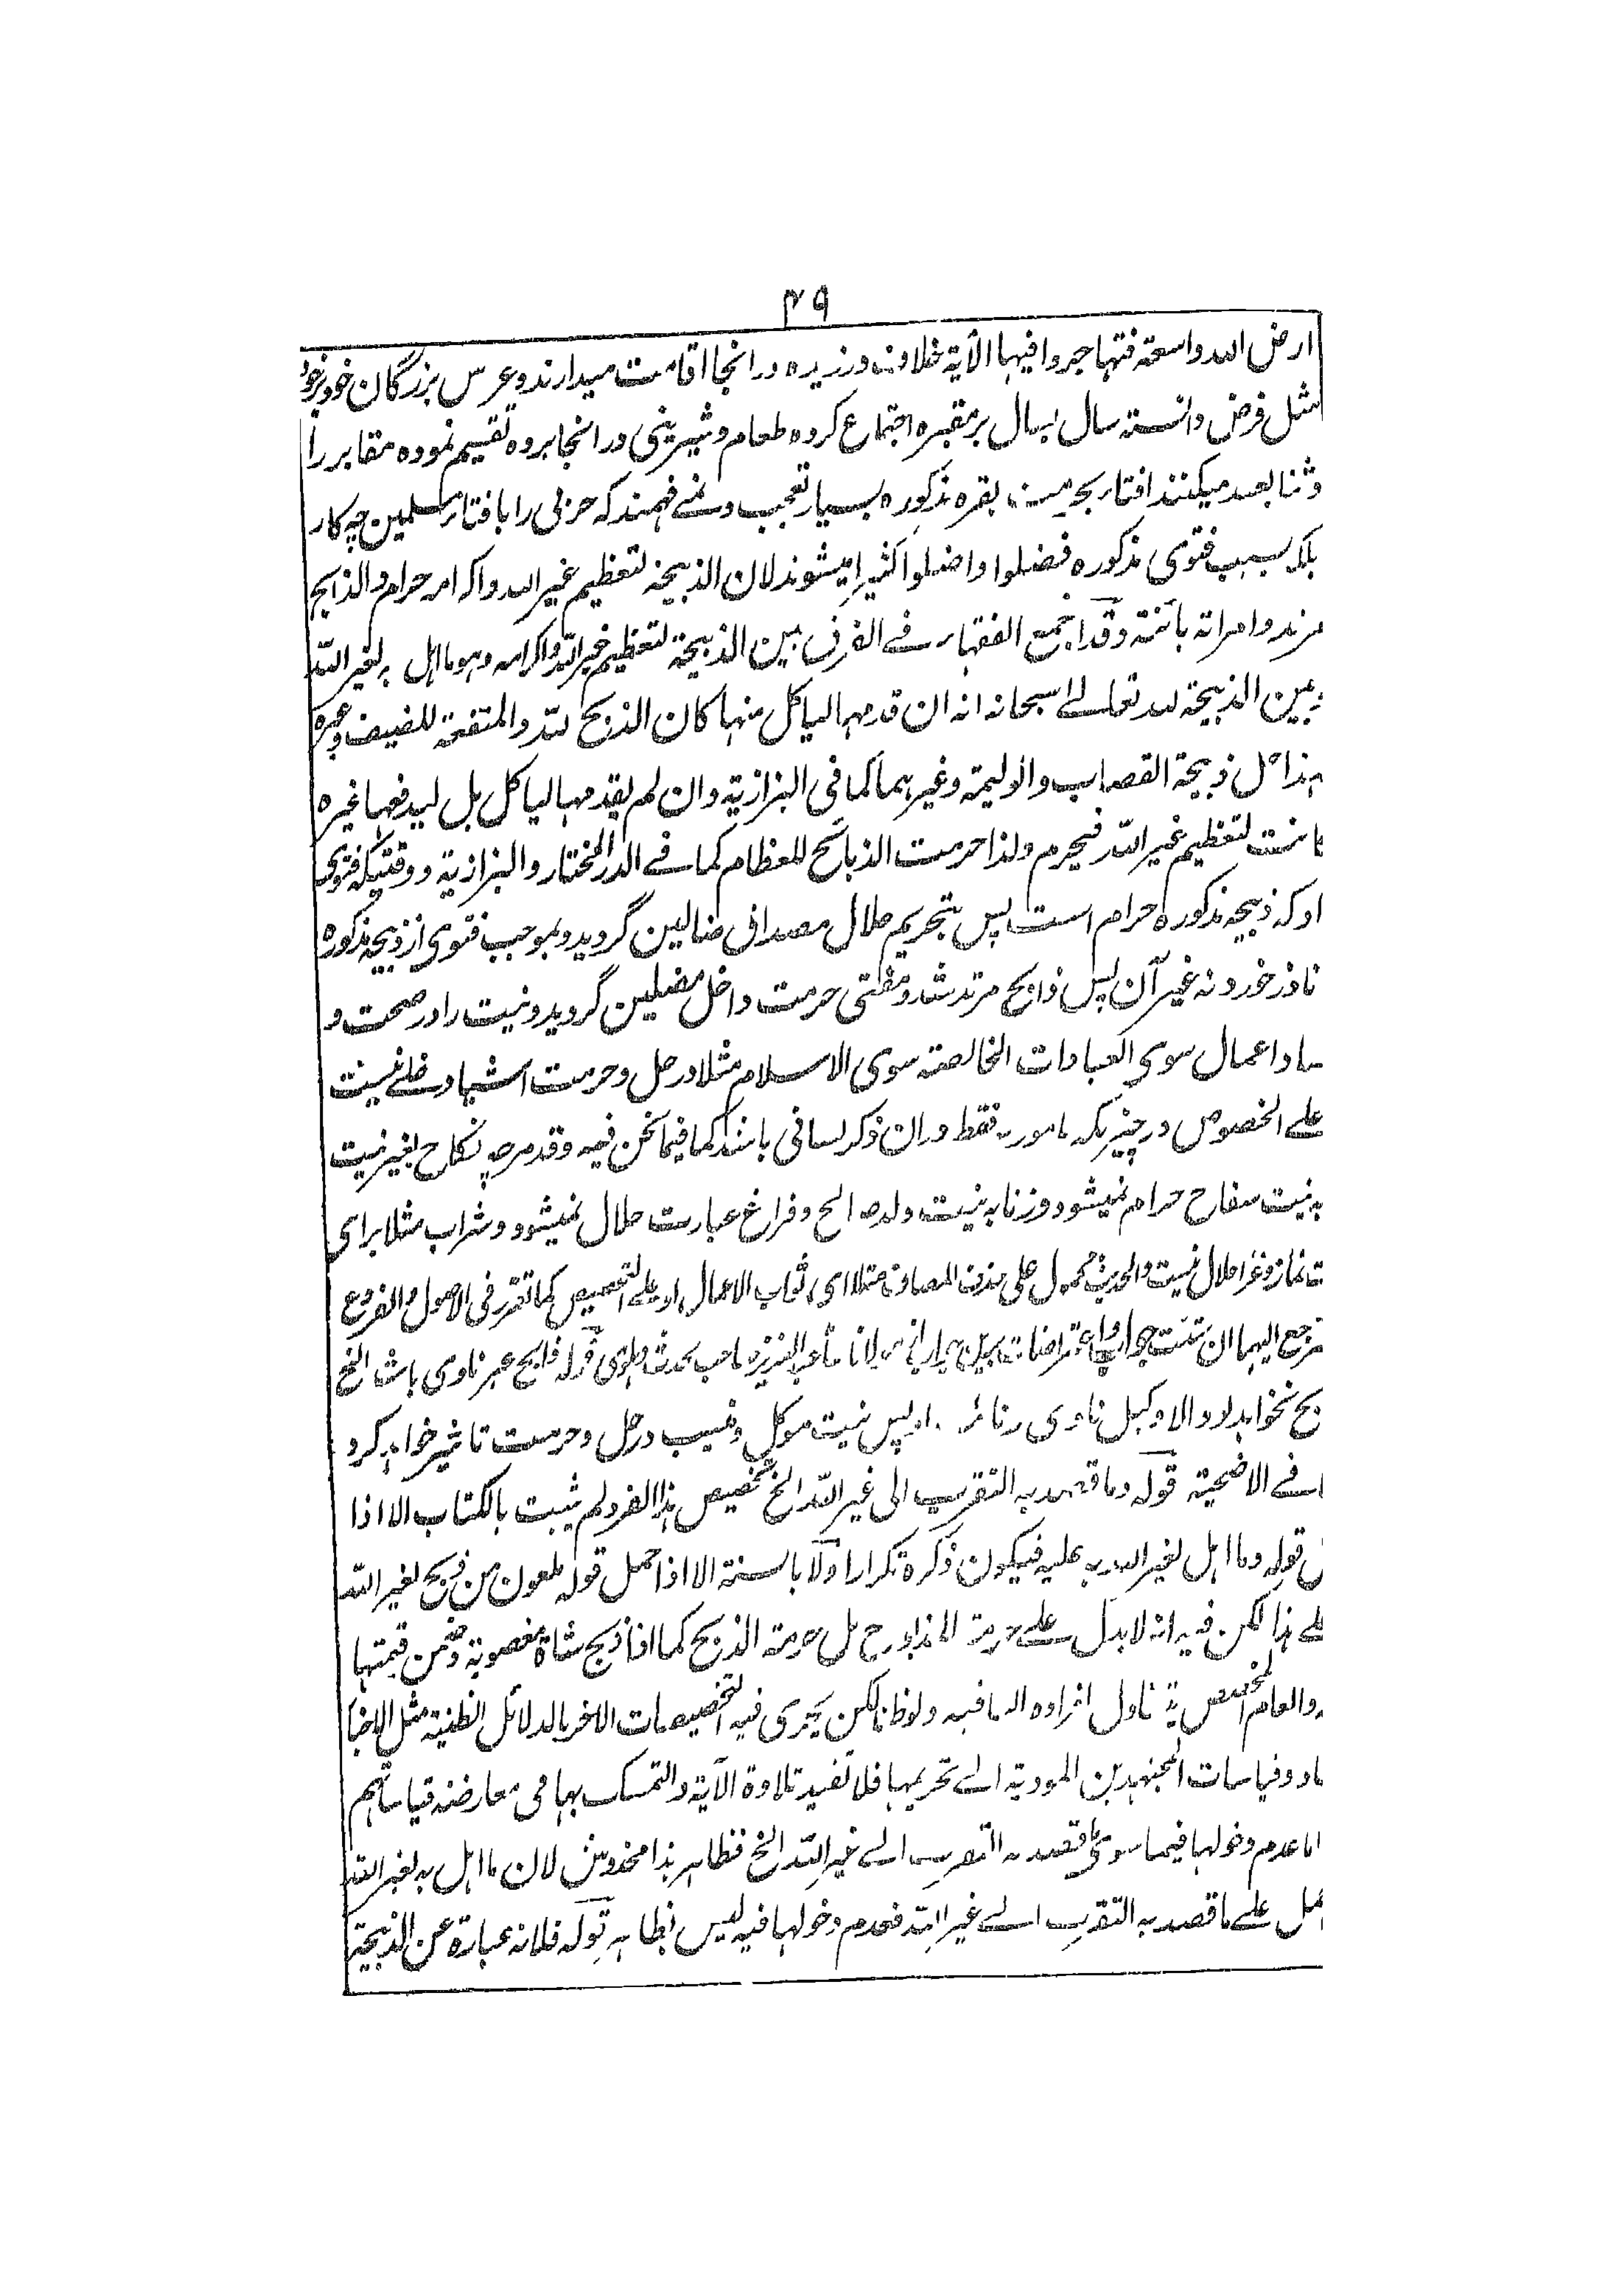 ۴۹
ارض الله واسعة فتهاجروا فیها الآیة خلاف ورزیده درانجا اقامت میدارند و عرس بزرگان خود برخود
مثل فرض دانسته سال بسال بر مقبره اجتماع کرده طعام و شیرینی درانجا برده تقسیم نموده مقابر را
وثنا یعبد میکنند افتاء بحرمت بقره مذکوره بسیار تعجب و نمے فهمند که حربی را بافتاء مسلمین چه کار
بلکه بسبب فتوی مذکوره فضلوا واضلوا کثیرا میشوند لان الذبیحة لتعظیم غیر الله واکرامه حرام والذابح
مرتد وامراته بائنة وقد اجمع الفقهاء فے الفرق بین الذبیحة لتعظیم غیر الله واکرامه وهو ما اهل به لغیر الله
وبین الذبیحة لله تعالے سبحانه انه ان قدمها لیاکل منها کان الذبح لله والمنفعة للضیف وغیره
هذا مثل ذبیحة القصاب والولیمة وغیرهما کما فی البزازیة وان لم یقدمها لیاکل بل لیدفعها غیره
کانت لتعظیم غیر الله فیحرم ولذا حرمت الذبائح للعظام کما فے الدر المختار والبزازیة و وقتیکه فتوی
اد که ذبیحه مذکوره حرام است پس بتحریم حلال مصداق ضالین گردید و بموجب فتوی از ذبیحه مذکوره
ناذر خورد نه غیر آن پس ذابح مرتد شد و مفتی حرمت داخل مضلین گردید و نیت را در صحت و
ساد اعمال سوی العبادات الخالصة سوی الاسلام مثلا در حل و حرمت اشیاء دخلے نیست
علے الخصوص در چیزیکه مامور به فقط دران ذکر لسانی باشد کما فیما نحن فیه وقد مرچه نکاح بغیر نیت
به نیت سفاح حرام نمیشود و زنا به نیت ولد صالح و فراغ عبادت حلال نمیشود و شراب مثلا برای
ت نماز و غزا حلال نیست والحدیث محمول علی حذف المضاف مثلا ای ثواب الاعمال او علے التخصیص کما تقرر فی الاصول والفروع
رجع الیهما ان شئت جواب اعتراضات مولانا شاه عبد العزیز صاحب محدث دهلوی قوله ذابح عمر ناوی باشد الخ
بح نخواهد لاد والا وکیل ناوی پس نیت موکل ومنیب در حل و حرمت تاثیر خواهد کرد
فے الاضحیة قوله وما قصد به التقرب الی غیر الله الخ تخصیص هذا الفرد لم یثبت بالکتاب الا اذا
قوله وما اهل لغیر الله به علیه فیکون ذکره تکرارا ولا بالسنة الا اذا حمل قوله ملعون من ذبح لغیر الله
لے هذا لکن فیه انه لا یدل علے حرمة المذبوح بل حرمة الذبح کما اذا ذبح شاة مغصوبة وضمن قیمتها
والعام المخصص یتناول افراده الباقیة ولو ظنا لکن یجری فیه التخصیصات الاخر بالدلائل الظنیة مثل الاخبا
اد وقیاسات المجتهدین المودیة الے تحریمها فلا تفید تلاوة الآیة والتمسک بها فی معارضة قیاساتهم
اما عدم دخولها فیما سوی ما قصد به التقرب الے غیر الله الخ فظاهر هذا مخدوش لان ما اهل به لغیر الله
مل علے ما قصد به التقرب الے غیر الله فعدم دخولها فیه لیس بظاهر قوله فلانه عبارة عن الذبیحة